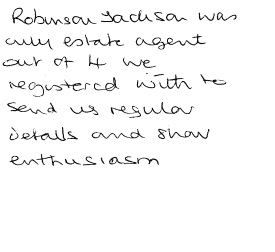 Robinson Jackson was
only estate agent
out of 4 we
registered with to
send us regular
details and show
enthusiasm